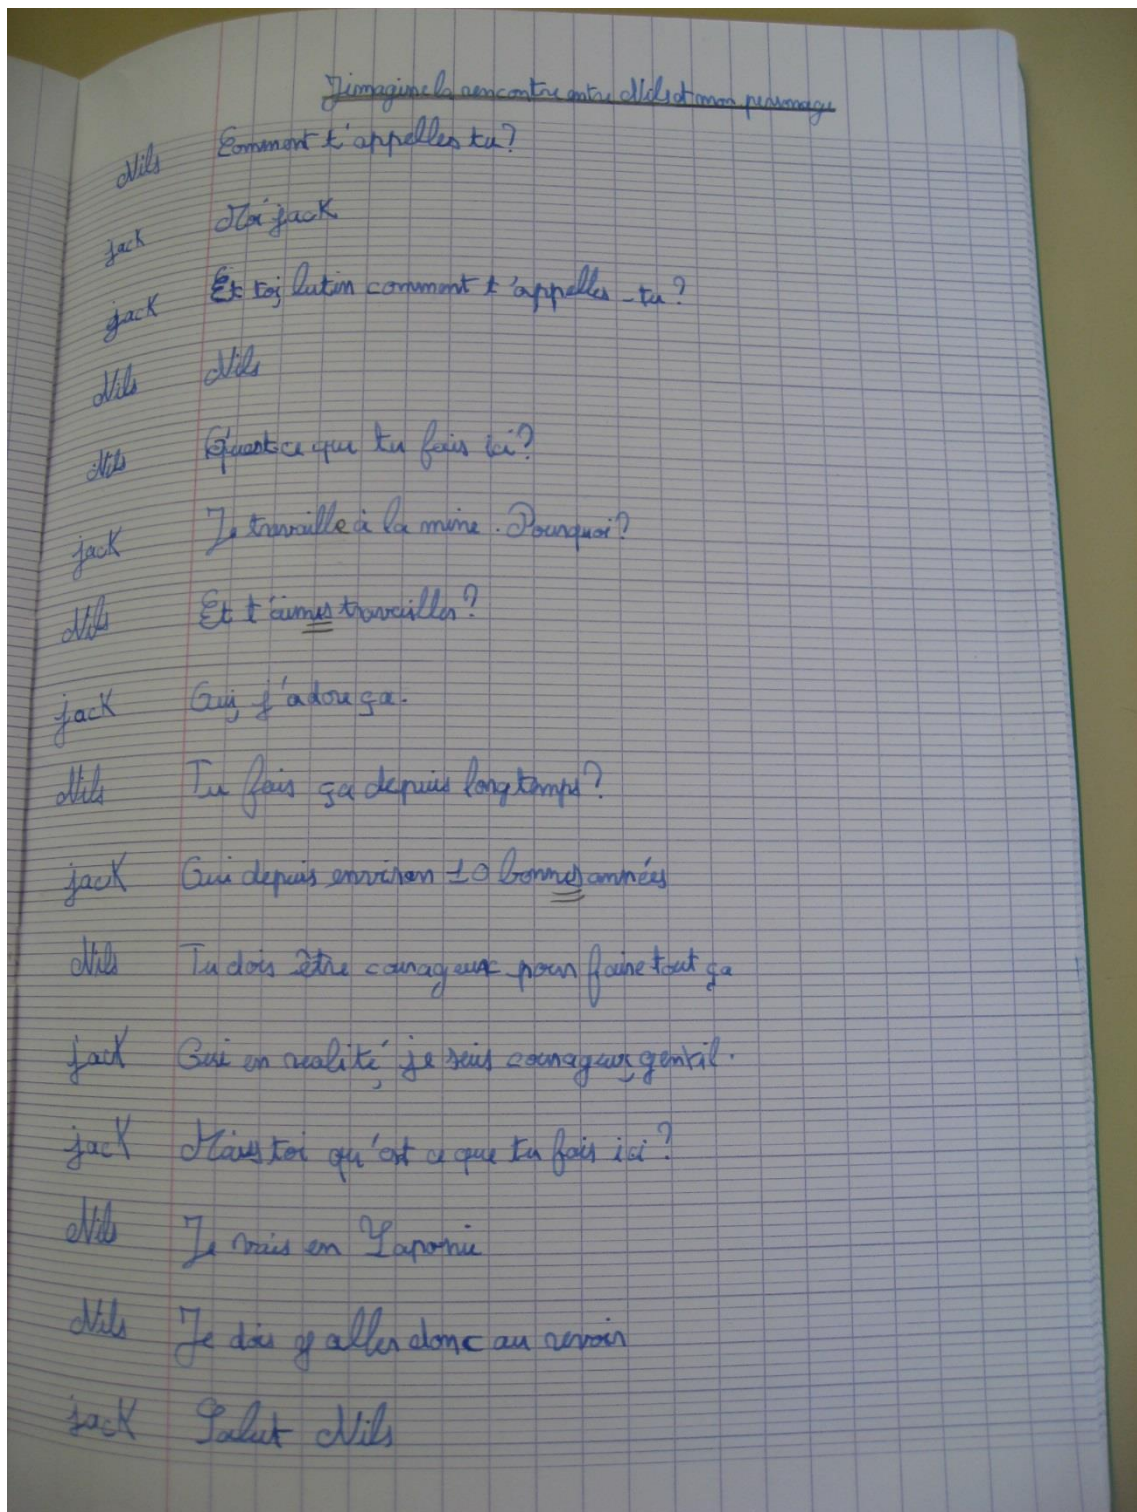 J'imagine la rencontre entre Nils et mon personage
Nils Comment t'appelles tu?
jack Moi jack
jack Et toi, lutin comment t'appelles-tu?
Nils Nils
Nils Qu'est ce que tu fais ici?
jack Je travaille à la mine. Pourquoi?
Nils Et t'aimes travailler?
jack Oui, j'adore ça.
Nils Tu fais ça depuis longtemps?
jack Oui depuis environ 10 bonnes années
Nils Tu dois être courageux pour faire tout ça
jack Oui en réalité, je suis courageux, gentil.
jack Mais toi qu'est ce que tu fais ici?
Nils Je vais en Laponie
Nils Je dois y aller donc au revoir
jack Salut Nils